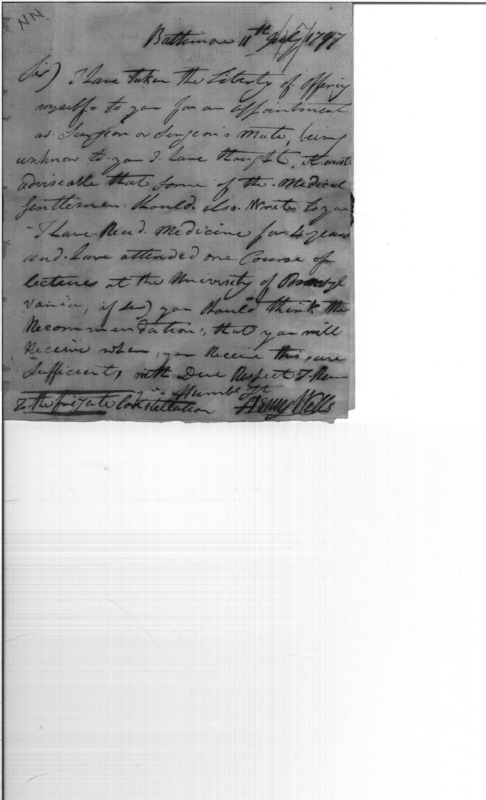 NN
Baltimore 11th July 1797
Sir) I have taken the Liberty of offering
myself to you for an appointment
as Surgeon or Surgeon's Mate, being
unknow to you I have thought it most
adviseable that some of the Medical
Gentlemen should also Write to you
I have Read Medicine for 4 years
and have attended one Course of
lectures at the University of Pennsyl
vania, if sir) you should think the
Recommendations, that you will
Receive when you Receive this, are
Sufficient, with Due Respect I
Humble
To the frigate Constellation Henry Wells